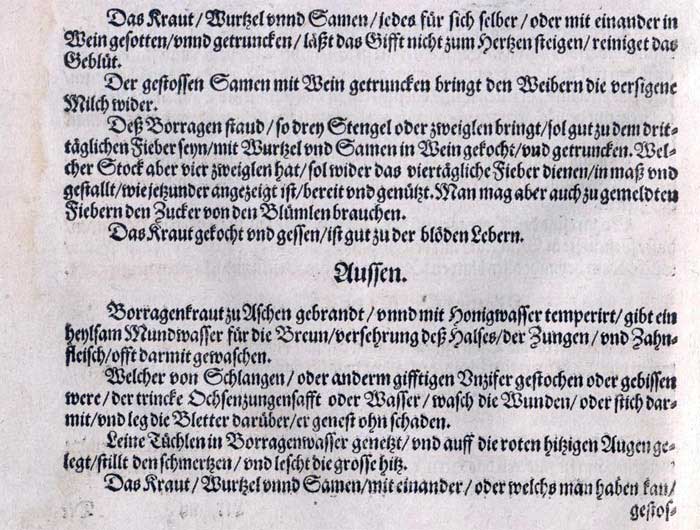 Das Kraut / Wurtzel vnnd Samen / jedes für sich selber / oder mit einander in
Wein gesotten / vnnd getruncken / läßt das Gifft nicht zum Hertzen steigen / reiniget das
Geblüt.
Der gestossen Samen mit Wein getruncken bringt den Weibern die versigene
Milch wider.
Deß Borragen staud / so drey Stengel oder zweiglen bringt / sol gut zu dem drit-
täglichen Fieber seyn / mit Wurtzel vnd Samen in Wein gekocht / vnd getruncken. Wel-
cher Stock aber vier zweiglen hat / sol wider das viertägliche Fieber dienen / in maß vnd
gestallt / wie jetzunder angezeigt ist / bereit vnd genützt. Man mag aber auch zu gemeldten
Fiebern den Zucker von den Blümlen brauchen.
Das Kraut gekocht vnd gessen / ist gut zu der blöden Lebern.
Aussen.
Borragenkraut zu Aschen gebrandt / vnnd mit Honigwasser temperirt / gibt ein
heylsam Mundwasser für die Breun / versehrung deß Halses / der Zungen / vnd Zahn-
fleisch / offt darmit gewaschen.
Welcher von Schlangen / oder anderm gifftigen Vnzifer gestochen oder gebissen
were / der trincke Ochsenzungensafft oder Wasser / wasch die Wunden / oder stich dar-
mit / vnd leg die Bletter darüber / er genest ohn schaden.
Leine Tüchlen in Borragenwasser genetzt / vnd auff die roten hitzigen Augen ge-
legt / stillt den schmertzen / vnd lescht die grosse hitz.
Das Kraut / Wurtzel vnnd Samen / mit einander / oder welchs man haben kan /
gestos-